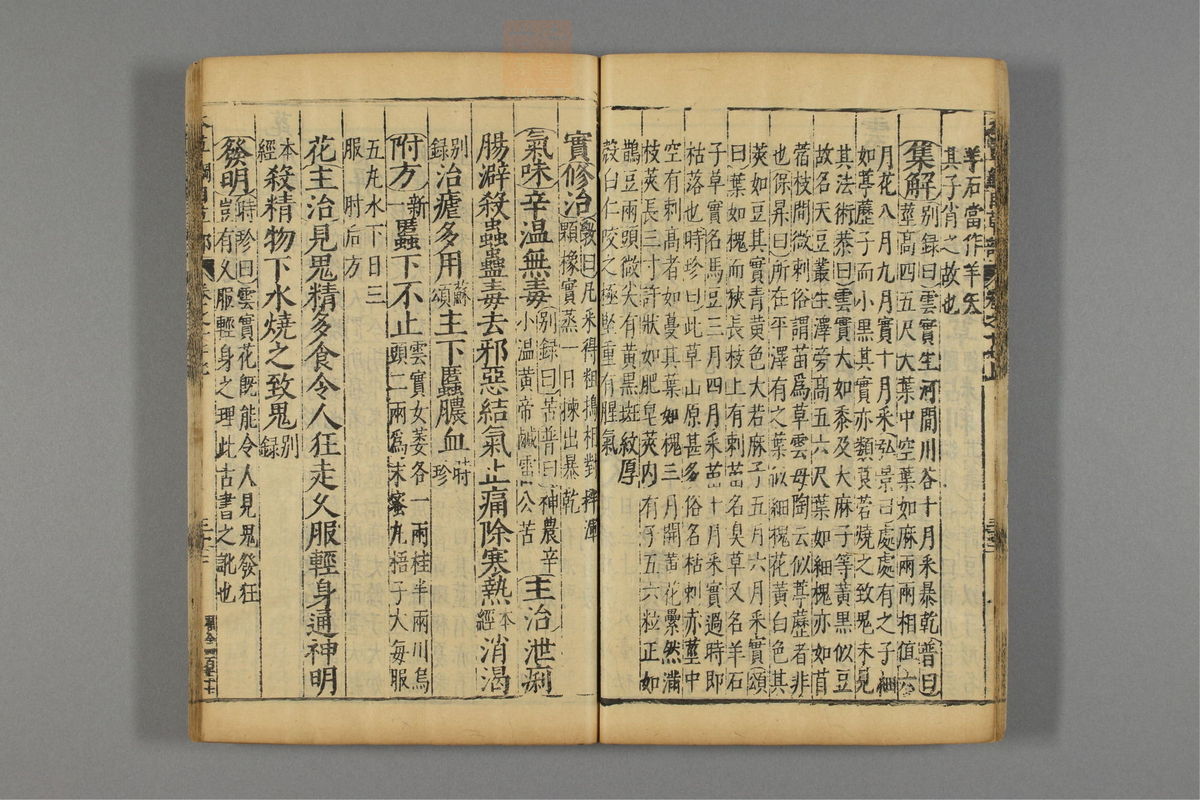 羊石當作羊矢
其子肖之故也
集解别録曰雲實生河間川谷十月采暴乾普曰
莖高四五尺大葉中空葉如麻兩兩相值六
月花八月九月實十月采弘景曰處處有之子細
如葶藶子而小黑其實亦類莨菪燒之致鬼未見
其法術恭曰雲實大如黍及大麻子等黃黑似豆
故名天豆叢生澤旁高五六尺葉如細槐亦如苜
蓿枝間微刺俗謂苗爲草雲母陶云似葶藶者非
也保昇曰所在平澤有之葉似細槐花黃白色其
莢如豆其實青黃色大若麻子五月六月采實頌
曰葉如槐而狹長枝上有刺苗名臭草又名羊石
子草實名馬豆三月四月采苗十月采實過時即
枯落也時珍曰此草山原甚多俗名粘刺赤莖中
空有刺高者如蔓其葉如槐三月開黃花纍然滿
枝莢長三寸許狀如肥皂莢内有子五六粒正如
鵲豆兩頭微尖有黃黑斑紋厚
殼白仁咬之極堅重有腥氣
實修治斆曰凡采得粗搗相對拌渾
顆橡實蒸一日揀出暴乾
氣味辛温無毒别録曰苦普曰神農辛
小温黄帝鹹雷公苦主治泄痢
腸澼殺蟲蠱毒去邪惡結氣止痛除寒熱本經消渴
别録治瘧多用蘇頌主下䘌膿血時珍
附方新一䘌下不止雲實女萎各一兩桂半兩川烏
頭二兩爲末蜜丸梧子大每服
五丸水下日三
服肘后方
花主治見鬼精多食令人狂走久服輕身通神明
本經殺精物下水燒之致鬼别録
發明時珍曰雲實花既能令人見鬼發狂
豈有久服輕身之理此古書之訛也